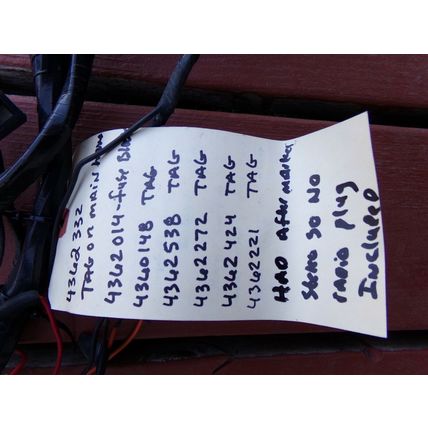 4362 332
TAG ON MAIN
4362014-fuse Bl
4360148 TAG
4362538 TAG
4362272 TAG
4362424 TAG
4362221 TAG
HAD after market
Stereo so NO
radio plug
Included